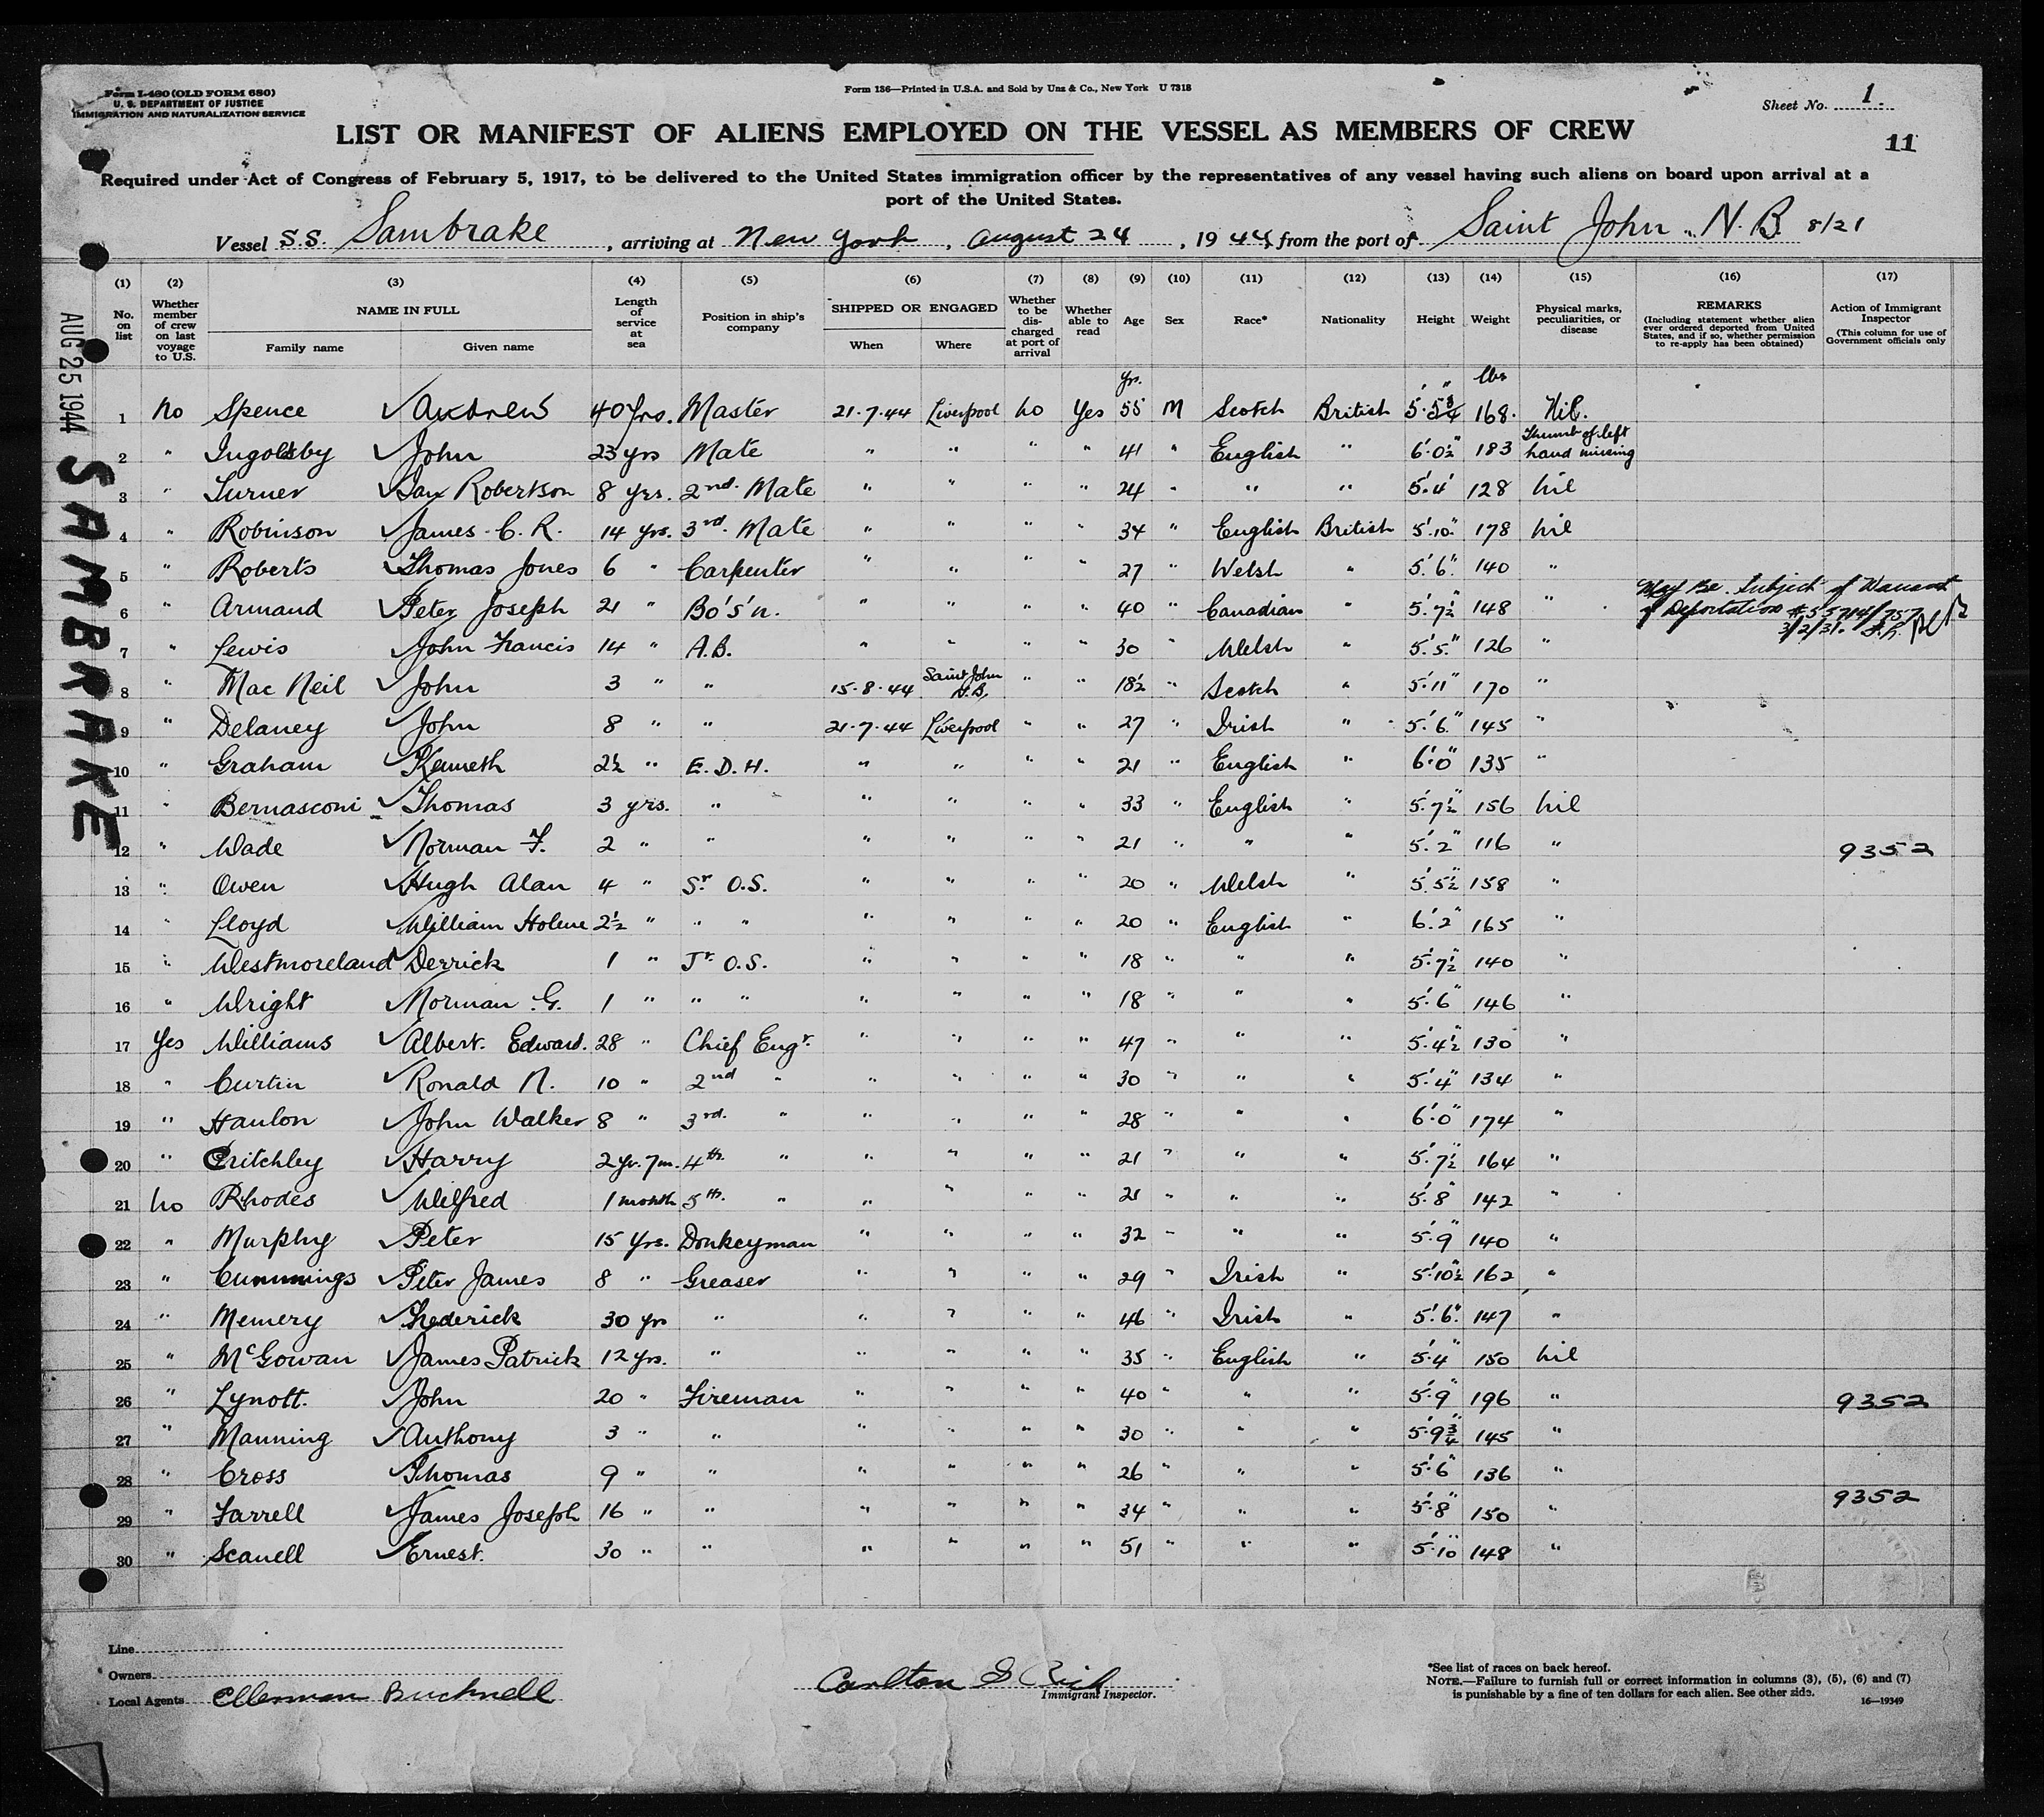 Form I-480 (OLD FORM 680)
U. S. DEPARTMENT OF JUSTICE
IMMIGRATION AND NATURALIZATION SERVICE
Form 136—Printed in U.S.A. and Sold by Unz & Co., New York U 7318
Sheet No. 1.
LIST OR MANIFEST OF ALIENS EMPLOYED ON THE VESSEL AS MEMBERS OF CREW
11
Required under Act of Congress of February 5, 1917, to be delivered to the United States immigration officer by the representatives of any vessel having such aliens on board upon arrival at a
port of the United States.
Vessel S.S. Sambrake, arriving at New York, August 24, 1944, from the port of Saint John, N.B. 8/21
(1) (2) (3) (4) (5) (6) (7) (8) (9) (10) (11) (12) (13) (14) (15) (16) (17)
No. on list
Whether member of crew on last voyage to U.S.
NAME IN FULL
Family name Given name
Length of service at sea
Position in ship's company
SHIPPED OR ENGAGED
When Where
Whether to be discharged at port of arrival
Whether able to read
Age
Sex
Race*
Nationality
Height
Weight
Physical marks, peculiarities, or disease
REMARKS
(Including statement whether alien ever ordered deported from United States, and if so, whether permission to re-apply has been obtained)
Action of Immigrant Inspector
(This column for use of Government officials only
AUG 25 1944
SAMBRAKE
yrs. ' " lbs
1 No Spence Andrew 40 Yrs. Master 21-7-44 Liverpool No Yes 55 M Scotch British 5'.5¾ 168. Nil.
2 " Ingoldsby John 23 yrs Mate " " " " 41 " English " 6'.0½" 183 Thumb of left hand missing
3 " Turner Ian Robertson 8 yrs. 2nd. Mate " " " " 24 " " " 5'.4' 128 Nil
4 " Robinson James C. R. 14 yrs. 3rd. Mate " " " " 34 " English British 5'.10" 178 Nil
5 " Roberts Thomas Jones 6 " Carpenter " " " " 27 " Welsh " 5'.6" 140 "
6 " Armand Peter Joseph 21 " Bo's'n. " " " " 40 " Canadian " 5'.7½" 148 " May Be Subject of Warrant of Deportation #55714/757 3/2/31.
7 " Lewis John Francis 14 " A.B. " " " " 30 " Welsh " 5'.5" 126 "
8 " Mac Neil John 3 " " 15-8-44 Saint John N.B. " " 18½ " Scotch " 5'.11" 170 "
9 " Delaney John 8 " " 21-7-44 Liverpool " " 27 " Irish " 5'.6" 145 "
10 " Graham Kenneth 2½ " E.D.H. " " " " 21 " English " 6'.0" 135 "
11 " Bernasconi Thomas 3 yrs. " " " " " 33 " English " 5'.7½" 156 Nil
12 " Wade Norman F. 2 " " " " " " 21 " " " 5'.2" 116 " 9352
13 " Owen Hugh Alan 4 " Sr O.S. " " " " 20 " Welsh " 5'.5½" 158 "
14 " Lloyd William Holme 2½ " " " " " " " 20 " English " 6'.2" 165 "
15 " Westmoreland Derrick 1 " Jr. O.S. " " " " 18 " " " 5'.7½" 140 "
16 " Wright Norman G. 1 " " " " " " " 18 " " " 5'.6" 146 "
17 Yes Williams Albert Edward. 28 " Chief Engr. " " " " 47 " " " 5'.4½" 130 "
18 " Curtin Ronald N. 10 " 2nd " " " " " 30 " " " 5'.4" 134 "
19 " Hanlon John Walker 8 " 3rd. " " " " " 28 " " " 6'.0" 174 "
20 " Critchley Harry 2 yr. 7m. 4th. " " " " " 21 " " " 5'.7½" 164 "
21 No Rhodes Wilfred 1 month 5th. " " " " " 21 " " " 5'.8" 142 "
22 " Murphy Peter 15 Yrs. Donkeyman " " " " 32 " " " 5'.9" 140 "
23 " Cummings Peter James 8 " Greaser " " " " 29 " Irish " 5'.10½" 162 "
24 " Memery Frederick 30 yrs " " " " " 46 " Irish " 5'.6" 147 "
25 " McGowan James Patrick 12 yrs. " " " " " 35 " English " 5'.4" 150 Nil
26 " Lynott. John 20 " Fireman " " " " 40 " " " 5'.9" 196 " 9352
27 " Manning Anthony 3 " " " " " " 30 " " " 5'.9¾" 145 "
28 " Cross Thomas 9 " " " " " " 26 " " " 5'.6" 136 "
29 " Farrell James Joseph 16 " " " " " " 34 " " " 5'.8" 150 " 9352
30 " Scanell Ernest. 30 " " " " " " 51 " " " 5'.10" 148 "
Line
Owners
Local Agents Ellerman Bucknell
Carlton G Rich
Immigrant Inspector.
*See list of races on back hereof.
NOTE.—Failure to furnish full or correct information in columns (3), (5), (6) and (7)
is punishable by a fine of ten dollars for each alien. See other side.
16—19349